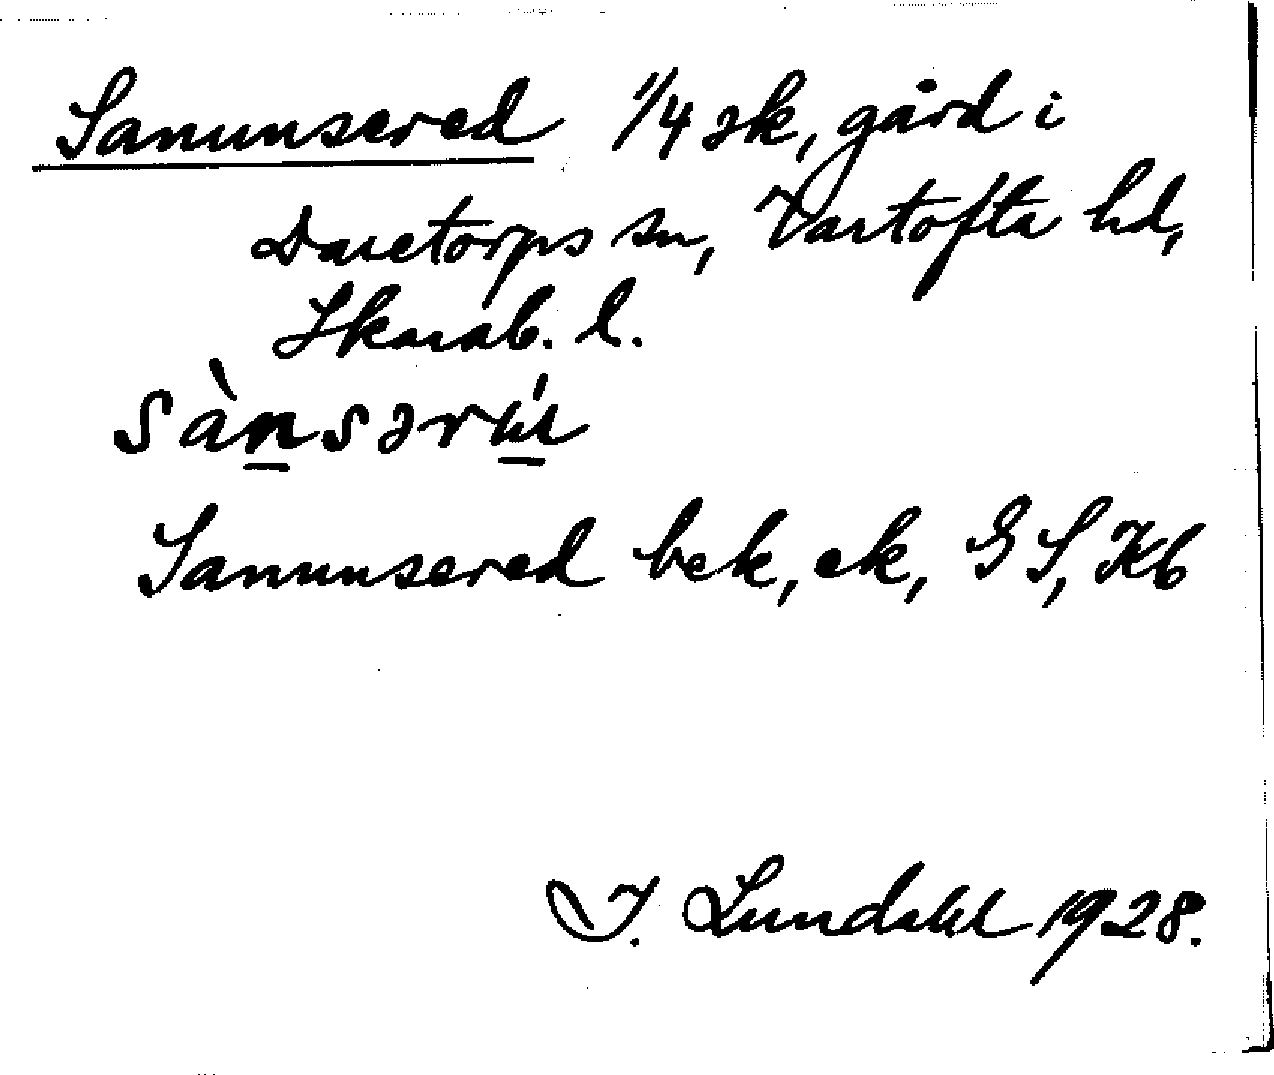 Sanunsered 1/4 sk, gård i
Daretorps sn, Vartofta hd,
Skarab. l.
Sanunsered bek, ek, GS, Kb
I. Lundahl 1928.